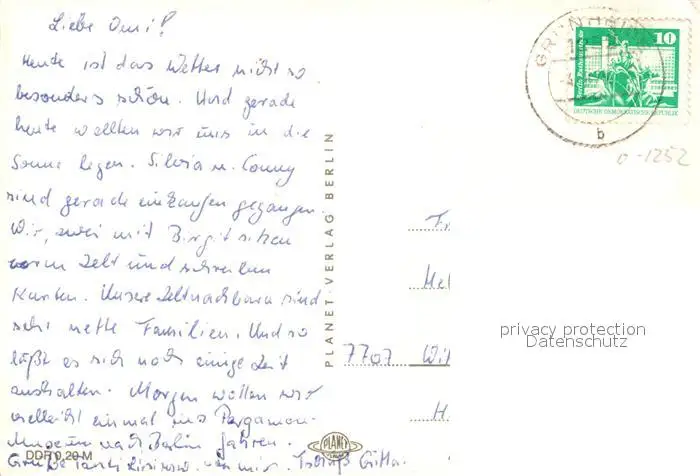 Liebe Omi!
Heute ist das Wetter nicht so
besonders schön. Und gerade
heute wollten wir uns in die
Sonne legen. Silvia u. Conny
sind gerade einkaufen gegangen.
Wir, zwei mit Birgit sitzen
vorm Zelt und schreiben
Karten. Unsere Zeltnachbarn sind
sehr nette Familien. Und so
läßt es sich noch einige Zeit
aushalten. Morgen wollen wir
vielleicht einmal ins Pergamon-
Museum nach Berlin fahren.
Grüße von mir. Gitta.
DDR 0,20 M
PLANET-VERLAG BERLIN
PLANET
GRÜNHEIDE
b
10
Berlin, Rathausstraße
DEUTSCHE DEMOKRATISCHE REPUBLIK
0-1252
7707
privacy protection
Datenschutz